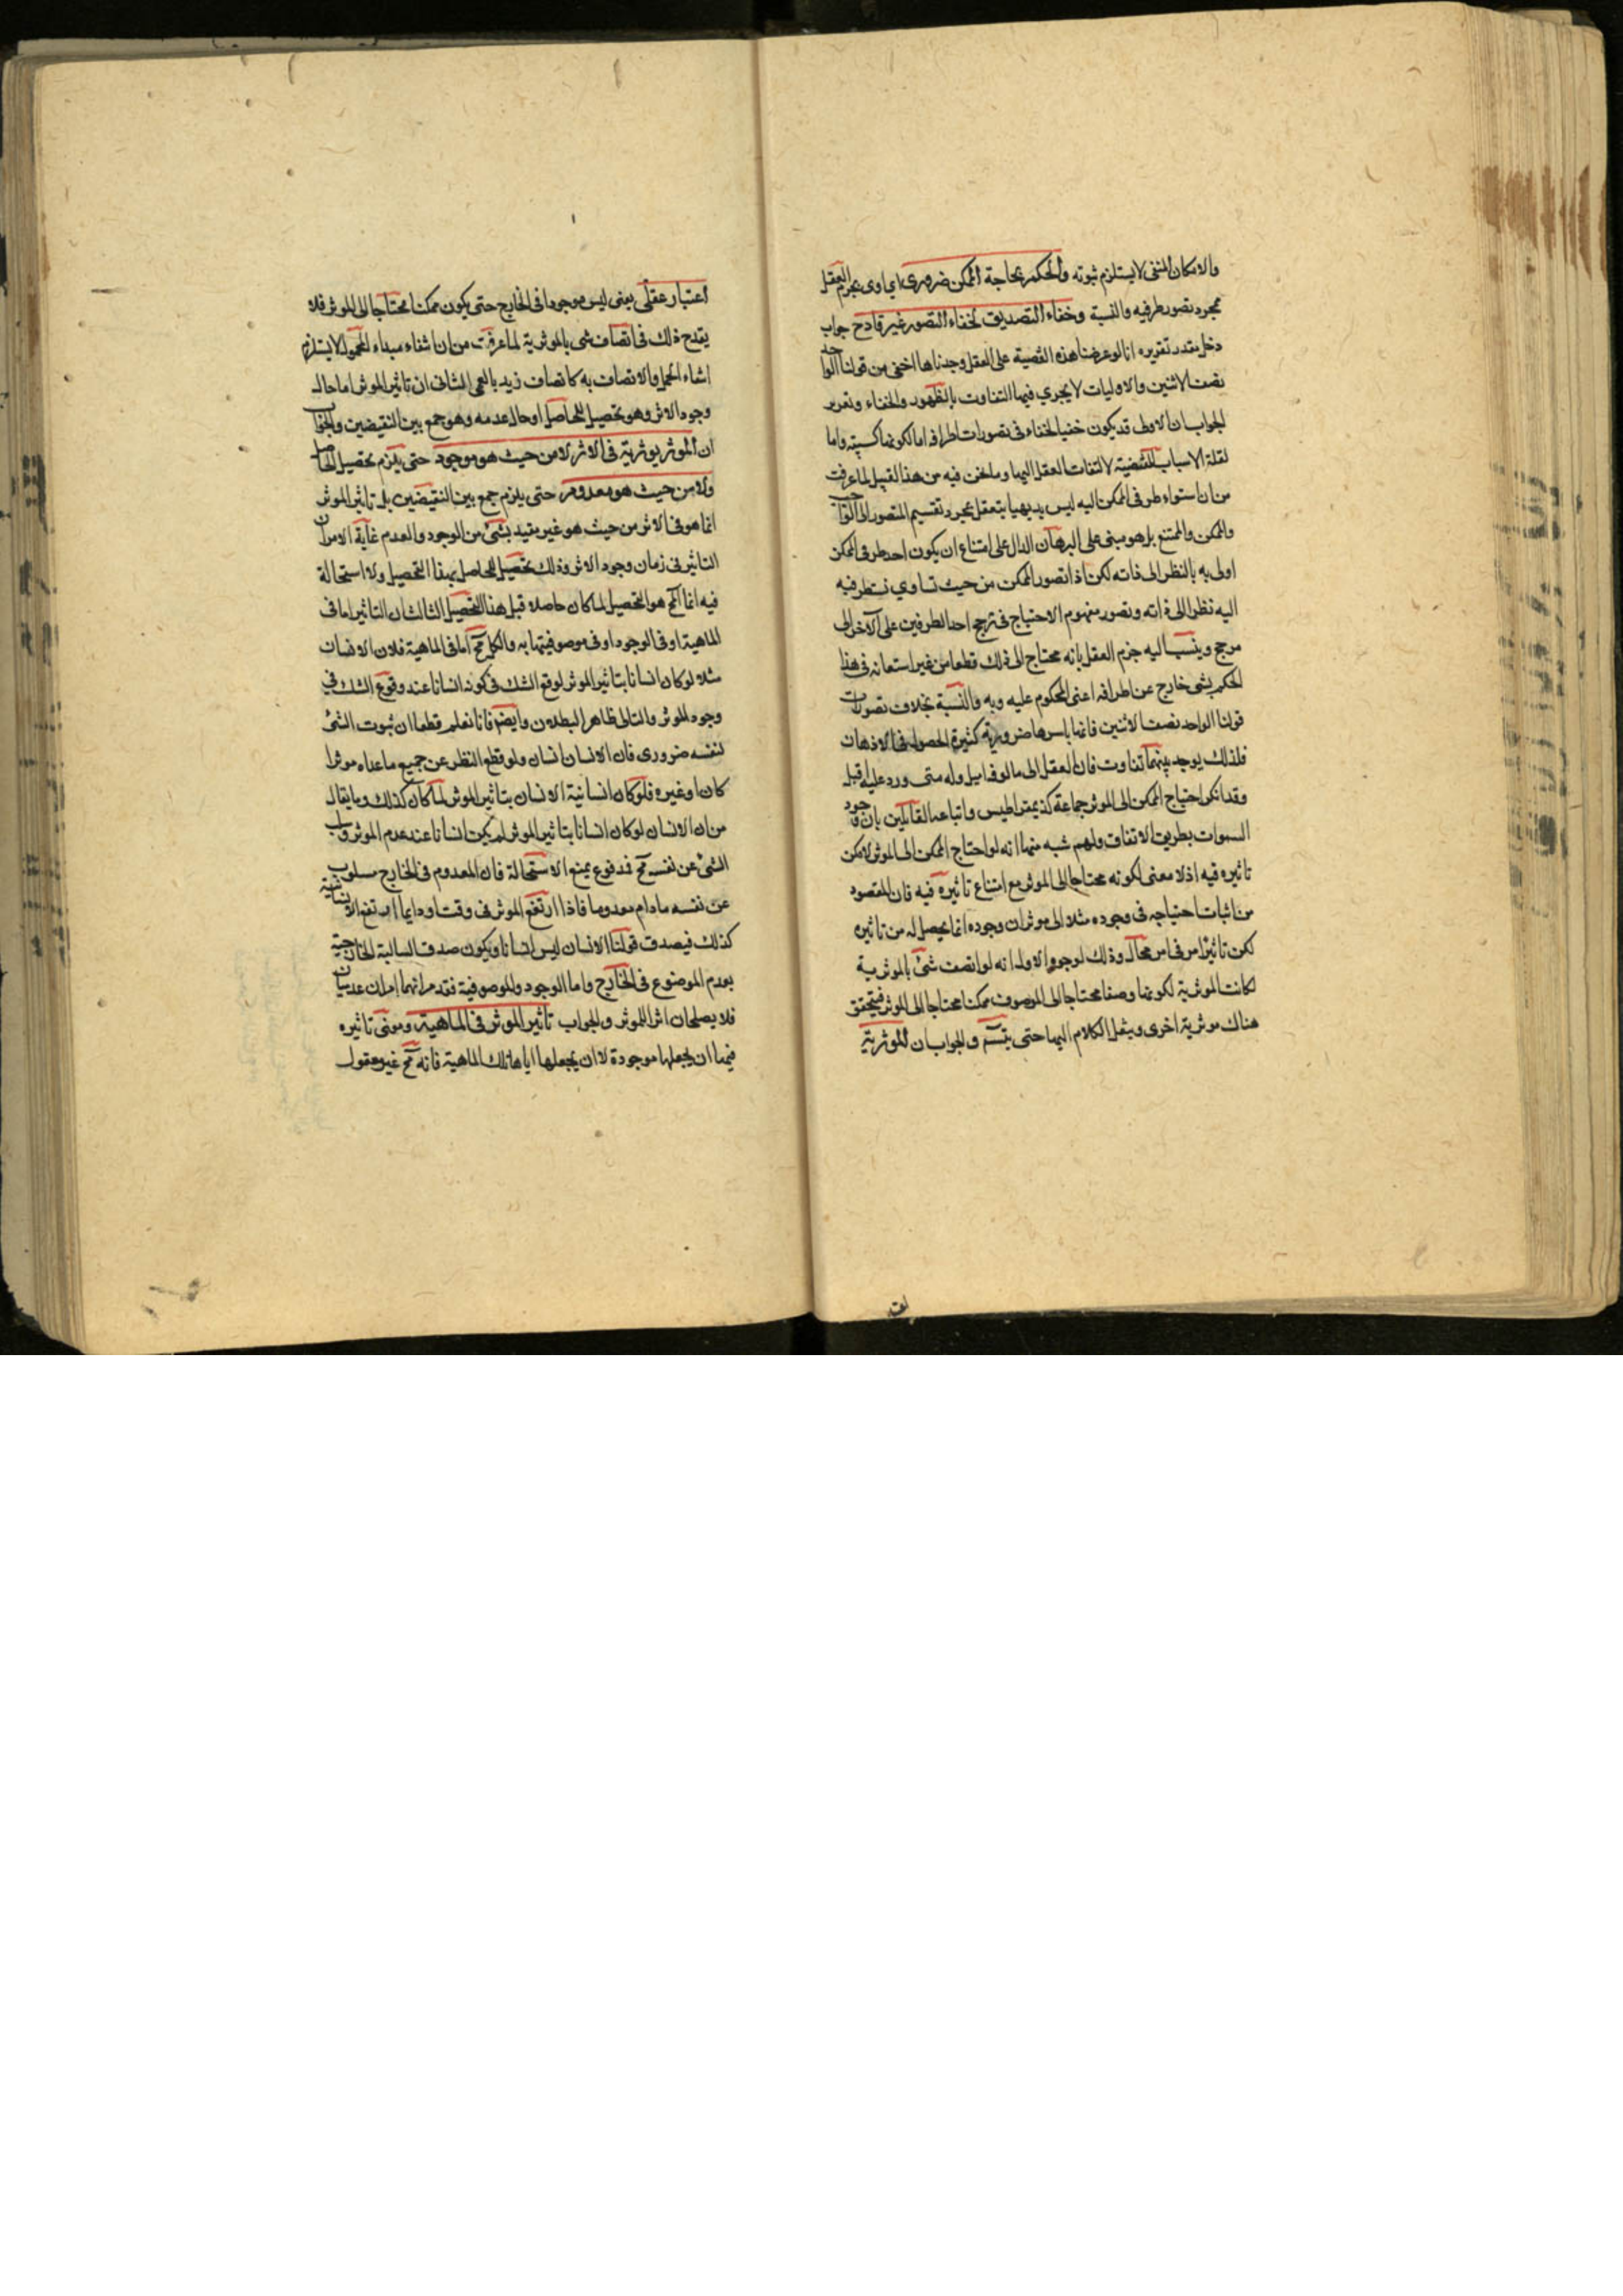 والامكان المنفى لا يستلزم ثبوته والحكم بحاجة الممكن ضرورى اى اولى يجزم العقل
بمجرد تصور طرفيه والنسبة وخفاء التصديق لخفاء التصور غير قادح جواب
دخل مقدر تقريره انا لو عرضنا هذه القضية على العقل وجدناها اخفى من قولنا الواحد
نصف الاثنين والاوليات لا يجري فيها التفاوت بالظهور والخفاء وتقرير
الجواب ان الاولى قد يكون خفيا لخفاء فى تصورات اطرافه اما لكونها كسبية واما
لقلة الاسباب المقتضية لالتفات العقل اليها وما نحن فيه من هذا القبيل لما عرفت
من ان استواء طرفى الممكن اليه ليس بديهيا يتعقل بمجرد تقسيم المتصور الى الواجب
والممكن والممتنع بل هو مبنى على البرهان الدال على امتناع ان يكون احد طرفى الممكن
اولى به بالنظر الى ذاته لكن اذا تصور الممكن من حيث تساوي نسبة طرفيه
اليه نظرا الى ذاته وتصور مفهوم الاحتياج فى ترجح احد الطرفين على الآخر الى
مرجح وينسب اليه جزم العقل بانه محتاج الى ذلك قطعا من غير استعانه فى هذا
الحكم بشى خارج عن اطرافه اعنى المحكوم عليه وبه والنسبة بخلاف تصورات
قولنا الواحد نصف الاثنين فانها باسرها ضرورية كثيرة الحصول فى الاذهان
فلذلك يوجد بينهما تفاوت فان العقل الى مالوفه اميل وله متى ورد عليه اقبل
وقد انكر احتياج الممكن الى الموثر جماعة كذيمقراطيس واتباعه القائلين بان وجود
السموات بطريق الاتفاق ولهم شبه منها انه لو احتاج الممكن الى الموثر لامكن
تاثيره فيه اذ لا معنى لكونه محتاجا الى الموثر مع امتناع تاثيره فيه فان المقصود
من اثبات احتياجه فى وجوده مثلا الى موثر ان وجوده انما يحصل له من تاثيره
لكن تاثير امر فى امر محال وذلك لوجوه الاول انه لو اتصف شئ بالموثرية
لكانت الموثرية لكونها وصفا محتاجا الى الموصوف ممكنا محتاجا الى الموثر فيتحقق
هناك موثرية اخرى وينقل الكلام اليها حتى يتسم والجواب ان الموثرية
اعتبار عقلى يعنى ليس موجودا فى الخارج حتى يكون ممكنا محتاجا الى الموثر فلا
يقدح ذلك فى اتصاف شى بالموثرية لما عرفت من ان انتفاء مبداء المحمول لا يستلزم
انتفاء الحمل والاتصاف به كاتصاف زيد بالعمى الثانى ان تاثير الموثر اما حال
وجود الاثر وهو تحصيل للحاصل او حال عدمه وهو جمع بين النقيضين والجواب
ان الموثر يوثر فى الاثر لا من حيث هو موجود حتى يلزم تحصيل الحاصل
ولا من حيث هو معدوم حتى يلزم جمع بين النقيضين بل تاثير الموثر
انما هو فى الاثر من حيث هو غير مقيد بشئ من الوجود والعدم غاية الامر ان
التاثير فى زمان وجود الاثر وذلك تحصيل للحاصل بهذا التحصيل ولا استحالة
فيه انما المح هو التحصيل لما كان حاصلا قبل هذا التحصيل الثالث ان التاثير اما فى
الماهية او فى الوجود او فى موصوفيتها به والكل مح اما فى الماهية فلان الانسان
مثلا لو كان انسانا بتاثير الموثر لوقع الشك فى كونه انسانا عند وقوع الشك فى
وجود الموثر والتالى ظاهر البطلان وايضا فانا نعلم قطعا ان ثبوت الشئ
لنفسه ضرورى فان الانسان انسان ولو قطع النظر عن جميع ما عداه موثرا
كان او غيره فلو كان انسانية الانسان بتاثير الموثر لما كان كذلك وما يقال
من ان الانسان لو كان انسانا بتاثير الموثر لم يكن انسانا عند عدم الموثر وسلب
الشئ عن نفسه مح فمدفوع بمنع الاستحالة فان المعدوم فى الخارج مسلوب
عن نفسه ما دام معدوما فاذا ارتفع الموثر فى وقت او دايما ارتفع الانسانية
كذلك فيصدق قولنا الانسان ليس انسانا ويكون صدق السالبة الخارجية
بعدم الموضوع فى الخارج واما الوجود والموصوفية فقد مر انهما امران عدميان
فلا يصلحان اثرا للموثر والجواب تاثير الموثر فى الماهية ومعنى تاثيره
فيها ان يجعلها موجودة لا ان يجعلها اياها تلك الماهية فانه مح غير معقول